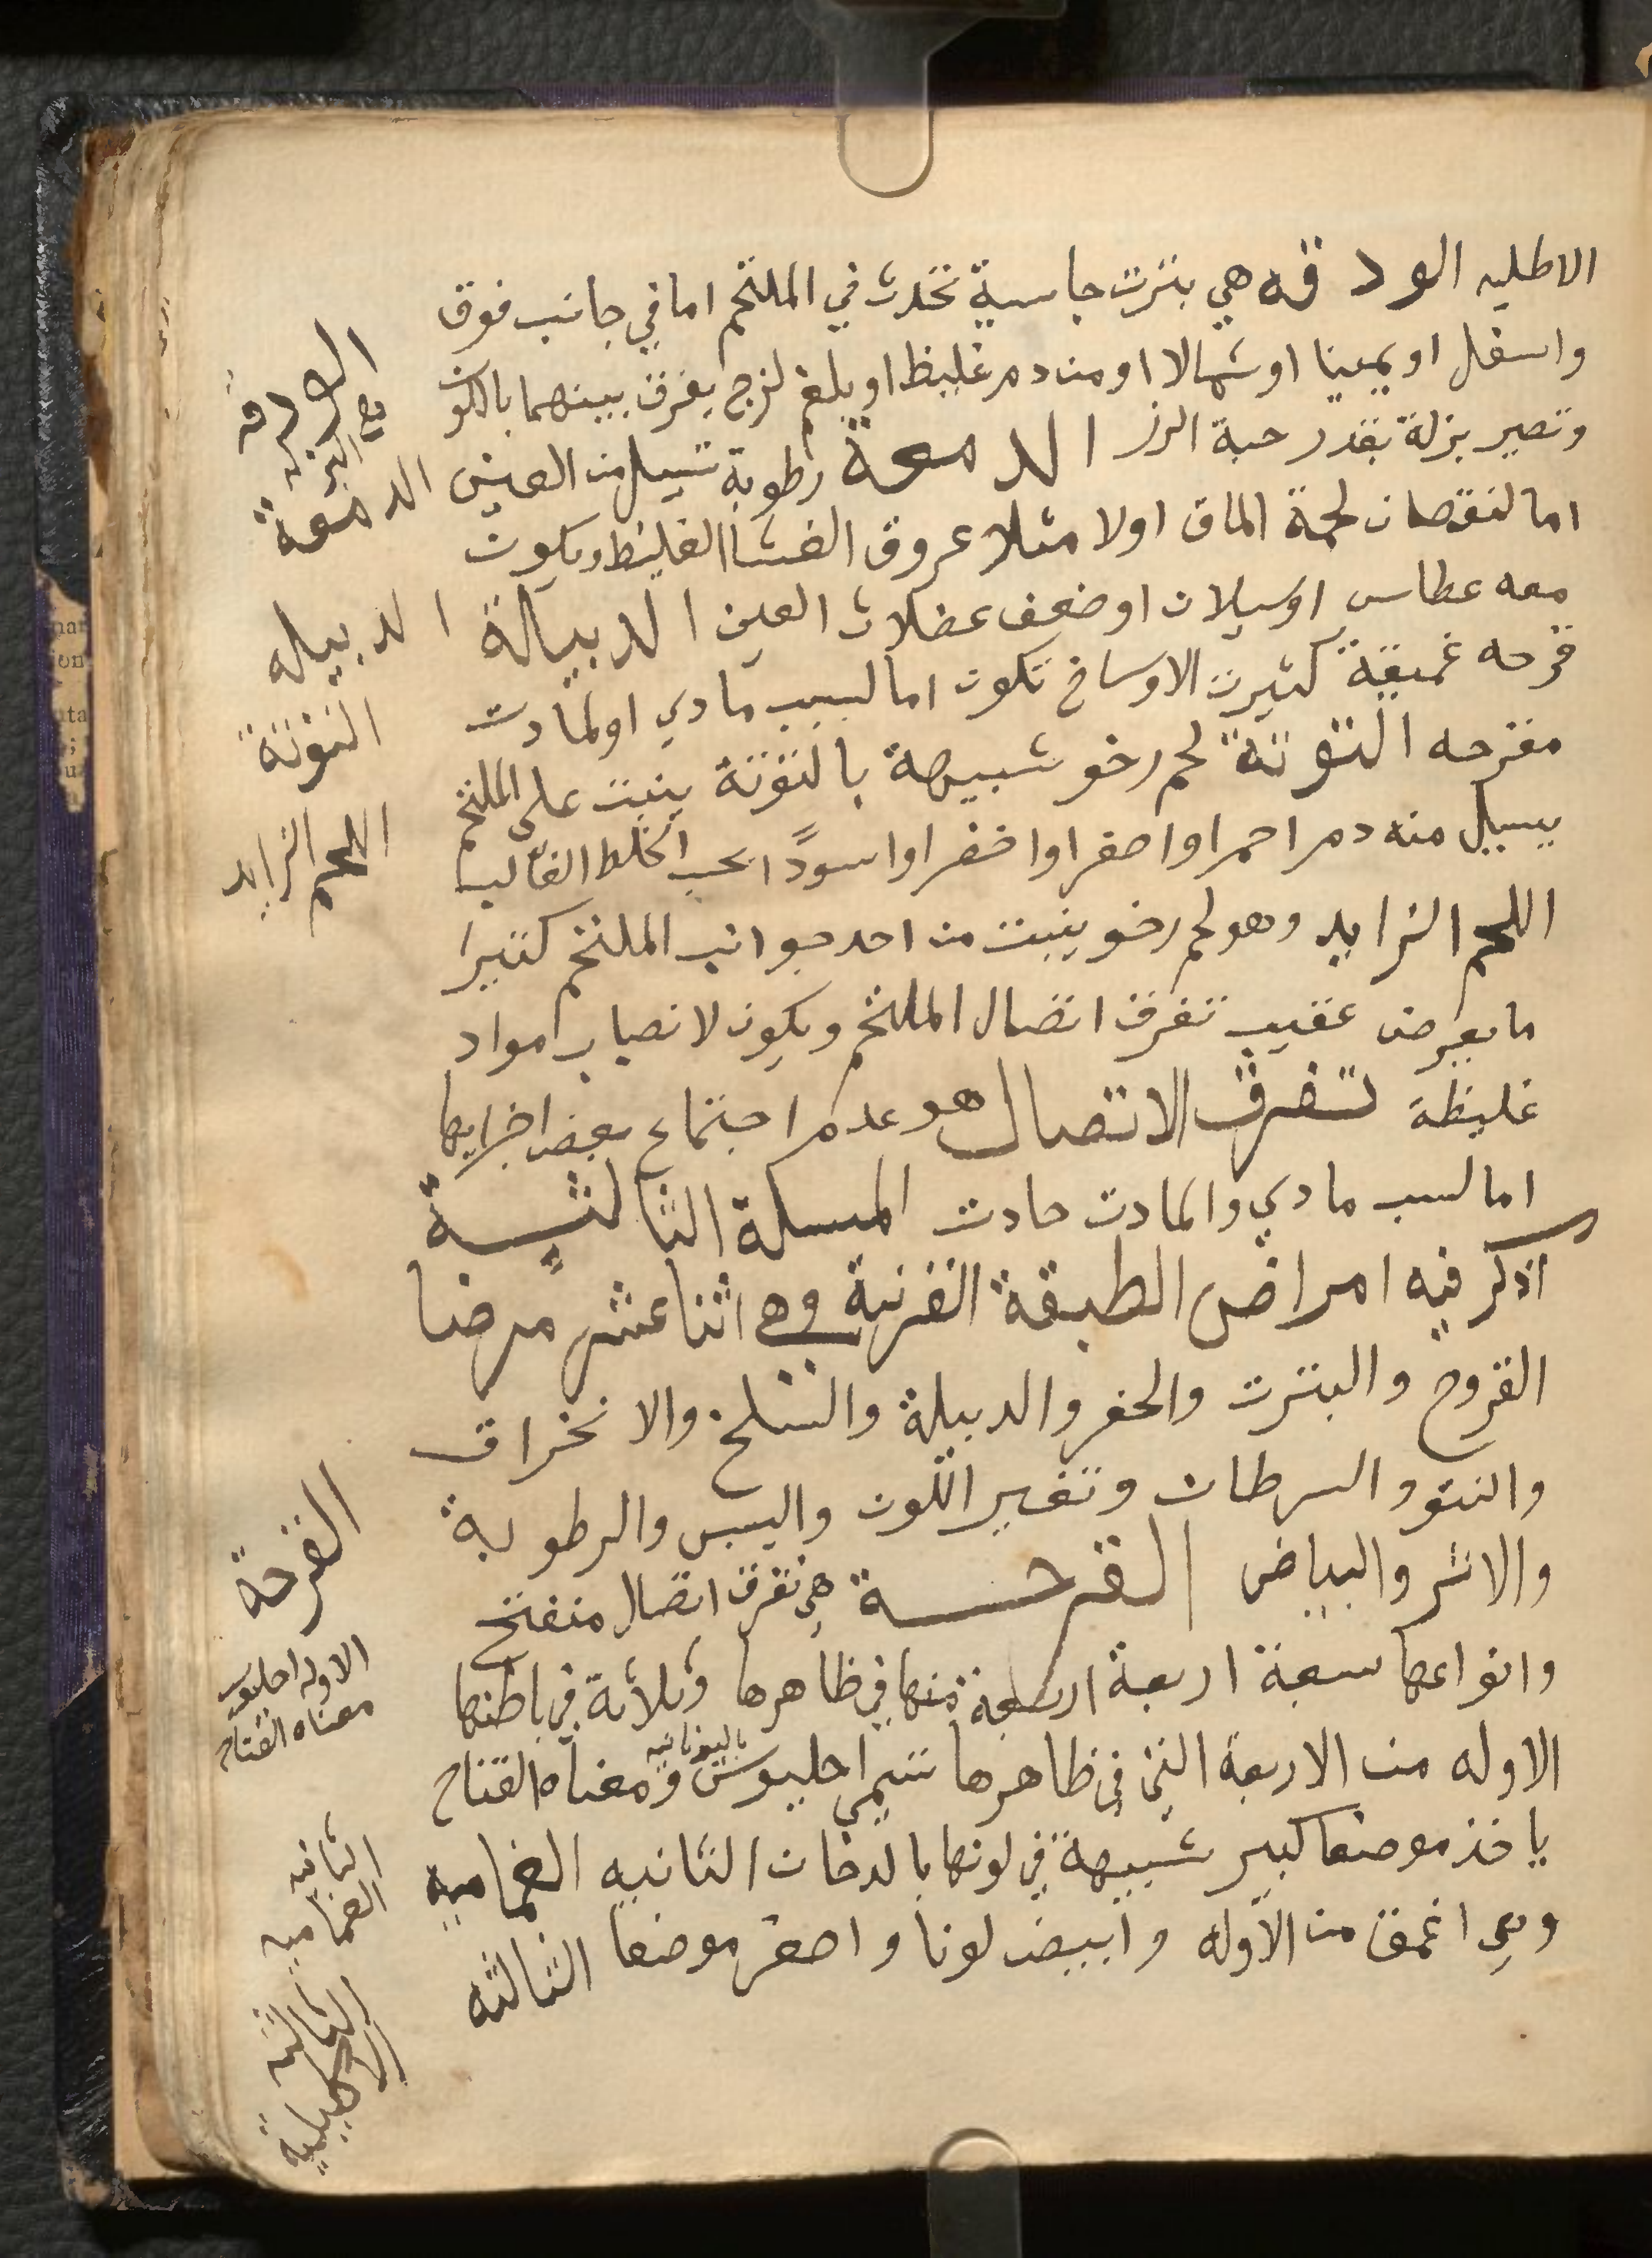 الاطليه الودقه هي بثرت جاسية تحدث في الملتحم اما في جانب فوق
واسفل او يمينا او شمالا او من دم غليظ او بلغم لزج يفرق بينهما باللون
وتصير بزلة بقدر حبة الرز الدمعة رطوبة تسيل من العين
اما لنقصان لحمة الماق اولا مثلا عروق الغشا الغليظ ويكون
معه عطاس او سيلان او ضعف عضلات العين الدبيالة
قرحه غميقة كثيرت الاوساخ تكون اما لسبب مادي او لمادت
مقرحه التوتة لحم رخو شبيهة بالتوتة ينبت على الملتحم
يسيل منه دم احمر او اصفر او اخضر او اسودًا بحسب الخلط الغالب
اللحم الزايد وهو لحم رخو ينبت من احد جوانب الملتحم كثيرا
ما يعرض عقيب تفرق اتصال الملتحم ويكون لانصباب مواد
غليظة تفرق الاتصال هو عدم اجتماع بعض اجزايها
اما لسبب مادي والمادت حادت المسلة الثالثة
اذكر فيه امراض الطبقة القرنية وهي اثنا عشر مرضا
القروح والبثرت والحفر والدبيلة والسلخ والانخراق
والنتوو السرطان وتغير اللون واليبس والرطوبة
والاثر والبياض القرحة هي تفرق اتصال منفتح
وانواعها سبعة اربعة اربعة منها في ظاهرها وثلاثة في باطنها
الاوله من الاربعة التي في ظاهرها تسمي احليوس باليونانيه ومعناه القتاح
ياخذ موضعا كبير شبيهة في لونها بالدخان الثانيه الغماميه
وهي اغمق من الاوله وابيض لونا واصغر موضعا الثالثه
الدمعة
الدبيله
التوتة
اللحم الزايد
القرحة
الاوله احليوس
معناه القتاح
الثانيه
الغماميه
الثالثة
الاكليلية